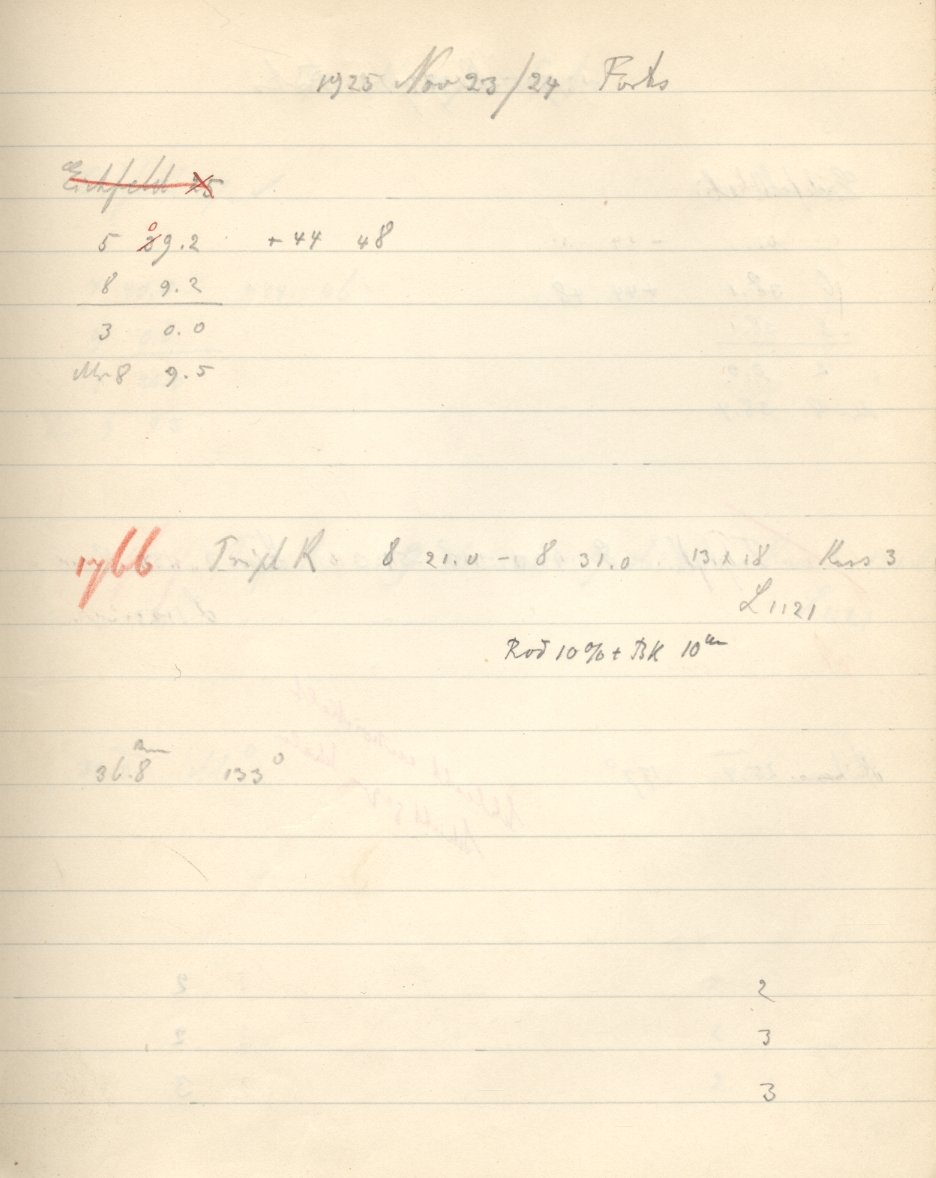 1925 Nov 23/24 Forts
Eichfeld 25
5 09.2 +44 48
8 9.2
3 0.0
Nr 8 9.5
1766 Tripl R 8 21.0 - 8 31.0 13 x 18 Kass 3
L 1121
Rod 10% + BK 10
36.8 mm 133°
2
3
3